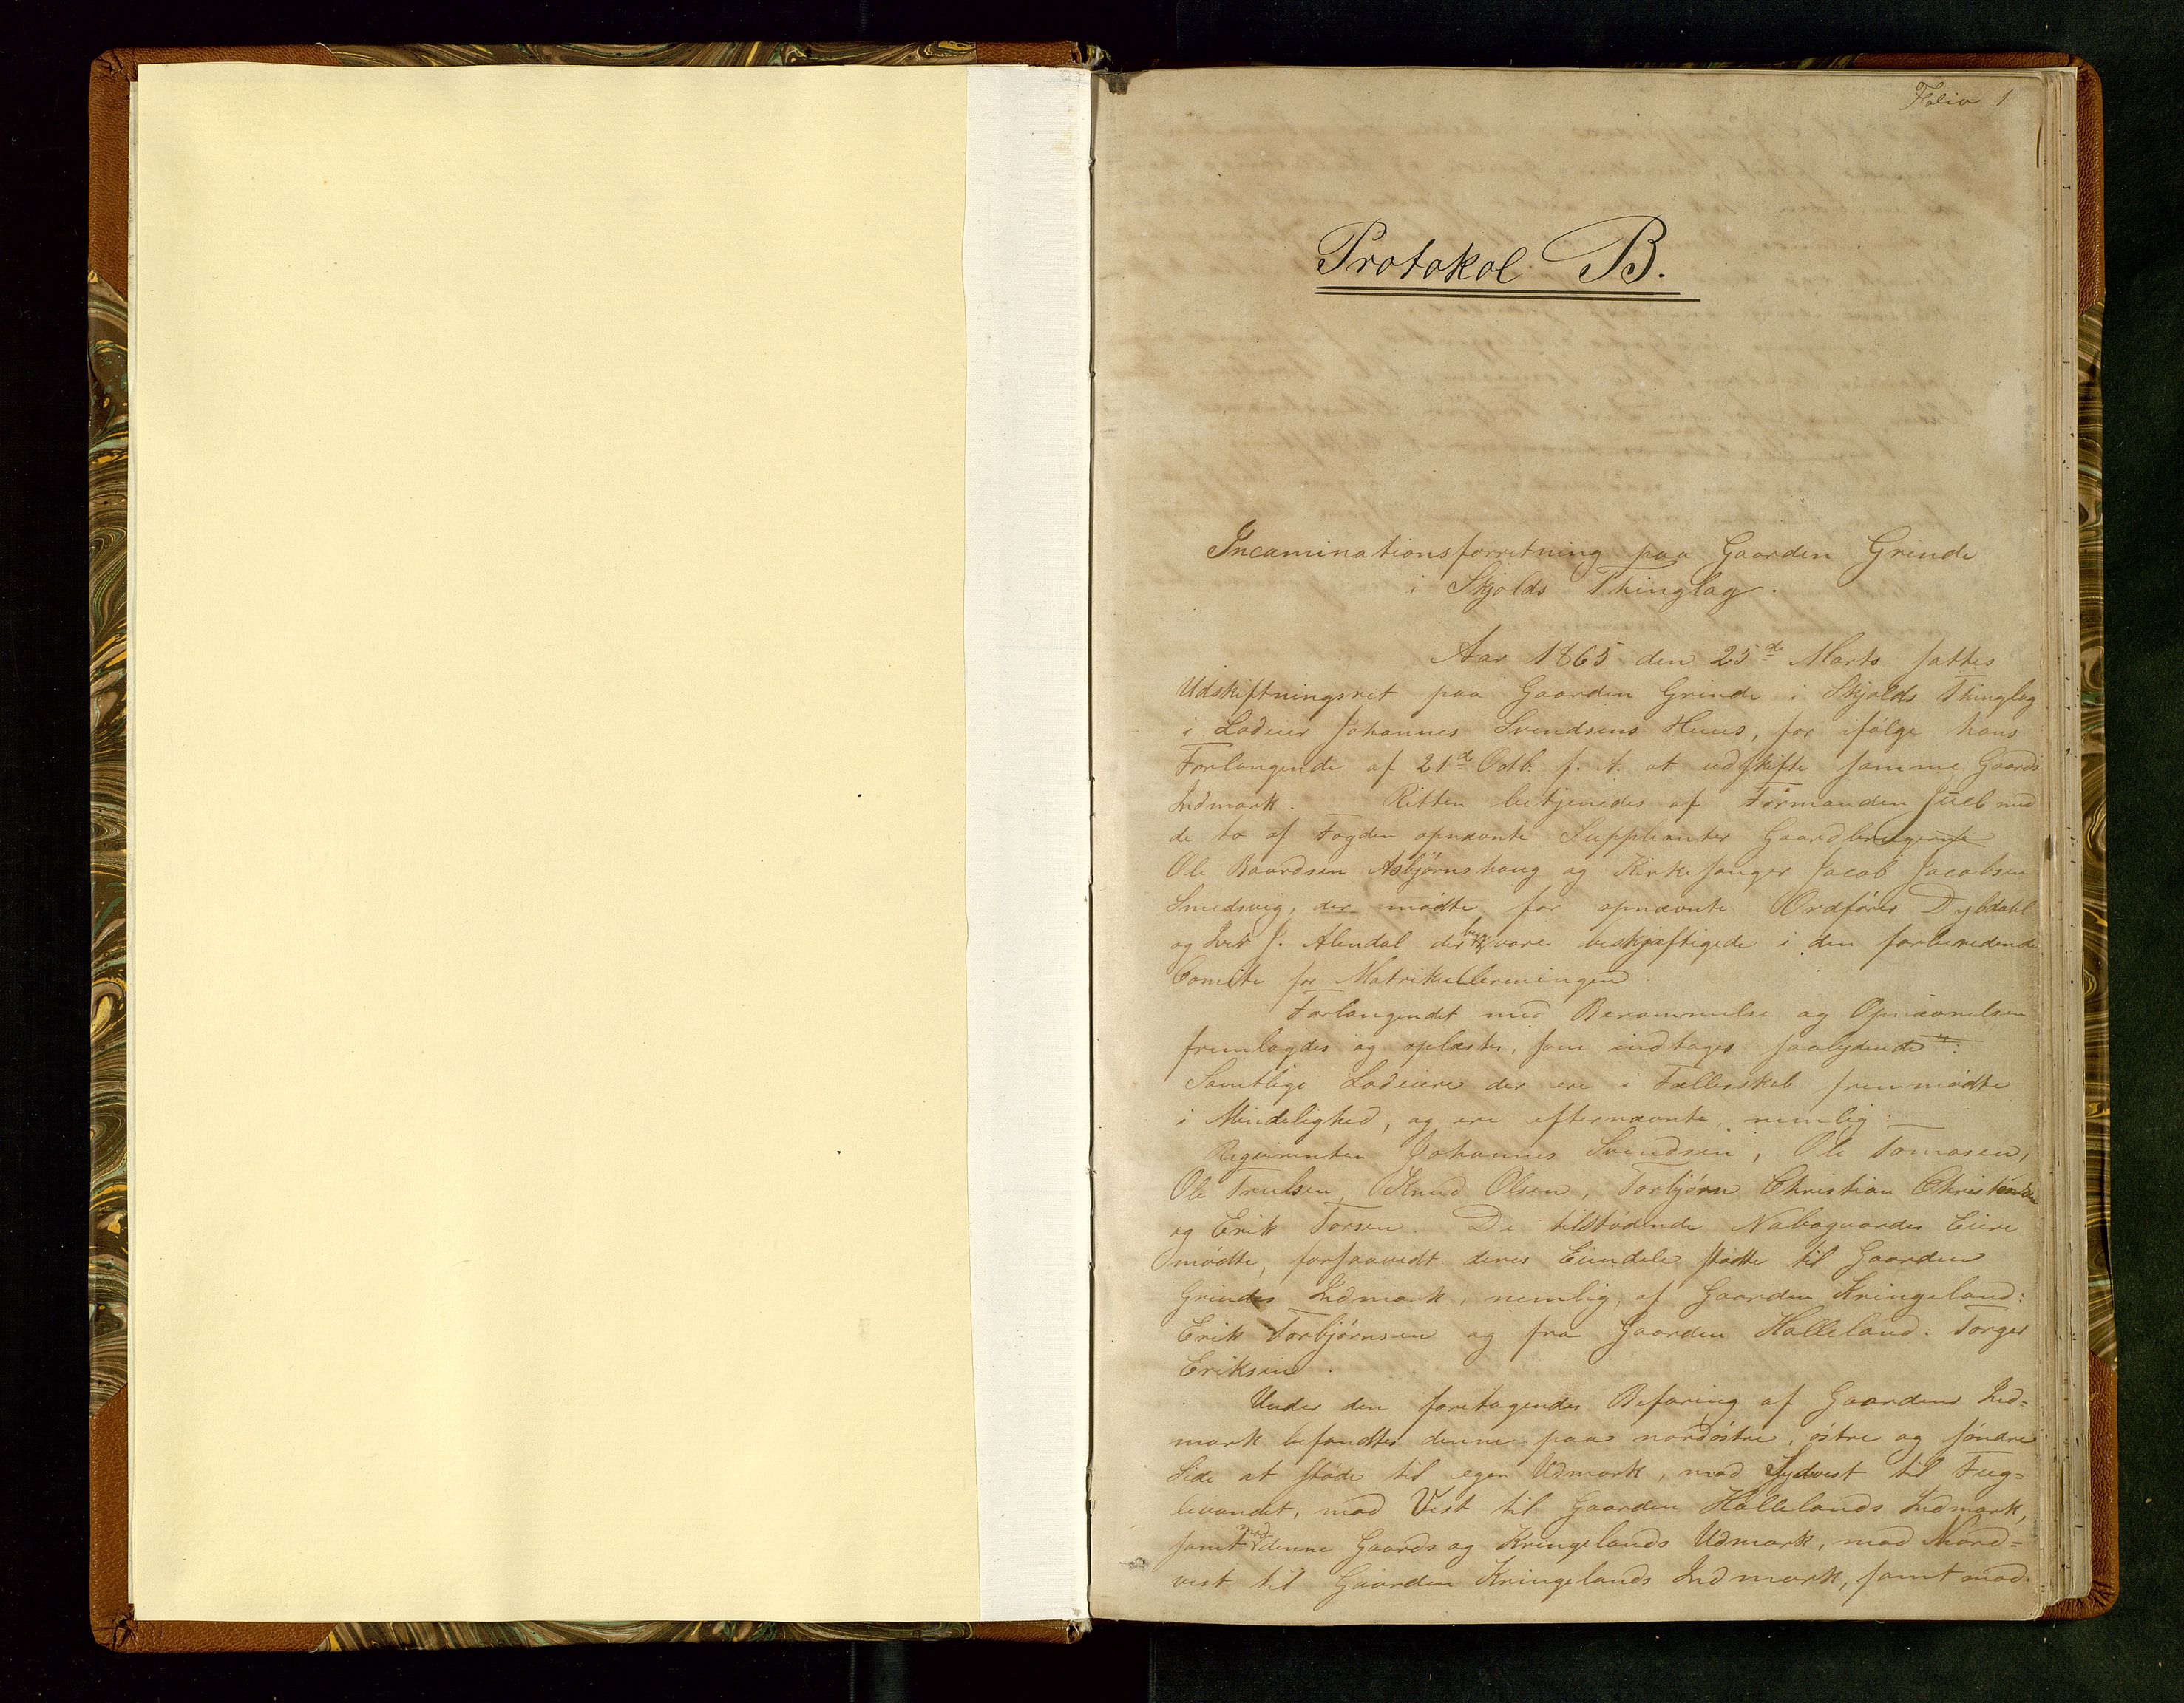 Folio 1
Protokol B.
Incaminationsforretning paa Gaarden Grinde
i Skjolds Thinglag.
Aar 1865 den 25de Marts sattes
Udskiftningsret paa Gaarden Grinde i Skjolds Thinglag
i Lodeier Johannes Svendsens Huus, for ifølge hans
Forlangende af 21de Octb. f. A. at udskifte samme Gaards
Indmark. Retten betjenedes af Formanden Juel med
de to af Fogden opnævnte Suppleanter Gaardbrugerne
Ole Baardsen Asbjørnshaug og Kirkesanger Jacob Jacobsen
Smedsvig, der mødte for opnævnte Ordfører Dybdahl
og Iver J. Alendal der beg vare beskjæftigede i den forberedende
Comite for Matrikullereningen.
Forlangendet med Berammelse og Opnævnelsen
fremlagdes og oplæstes, som indtages saalydende ":
Samtlige Lodeiere der ere i Fællesskab fremmødte
i Mindelighed, og ere efternævnte, nemlig:
Reqvirenten Johannes Svendsen, Ole Tomasen,
Ole Trulsen, Knud Olsen, Torbjørn Christian Christensen
og Erik Torsen. De tilstødende Nabogaardes Eiere
mødte, forsaavidt deres Eiendele stødte til Gaarden
Grindes Indmark, nemlig, af Gaarden Kringeland:
Erik Torbjørnsen og fra Gaarden Halleland: Torger
Eriksen.
Under den foretagendes Befaring af Gaardens Ind=
mark befandtes denne paa nordøstre, østre og søndre
Side at støde til egen Udmark, mod Sydvest til Fug=
levandet, mod Vest til Gaarden Hallelands Indmark,
samt mod denne Gaards og Kringelands Udmark, mod Nord=
vest til Gaarden Kringelands Indmark, samt mod